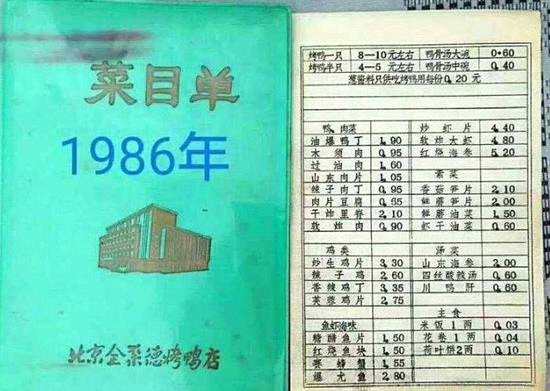 菜目单
1986年
北京全聚德烤鸭店
烤鸭一只 8—10元左右 鸭骨汤大碗 0.60
烤鸭半只 4—5元左右 鸭骨汤中碗 0.40
葱酱料只供吃烤鸭用每份0.20元
鸭、肉菜 炒虾片 4.40
油爆鸭丁 1.90 软炸大虾 4.80
木须肉 0.95 红烧海参 5.20
过油肉 1.60 素菜
山东肉片 1.05
辣子肉丁 0.95 香菇笋片 2.10
肉片豆腐 0.65 鲜蘑笋片 2.00
干炸里脊 2.10 鲜蘑油菜 1.50
软炸肉 0.90 虾干油菜 0.60
鸡类 汤菜
炒生鸡片 3.30 山东海参 2.00
辣子鸡 2.60 四丝酸辣汤 0.60
香辣鸡丁 3.35 川鸭肝 0.60
芙蓉鸡片 2.75
主食
鱼虾海味 米饭1两 0.03
糟醋鱼片 1.50 花卷1两 0.04
红烧鱼块 1.50 荷叶饼2两 0.10
赛螃蟹 1.55
爆尤鱼 2.80